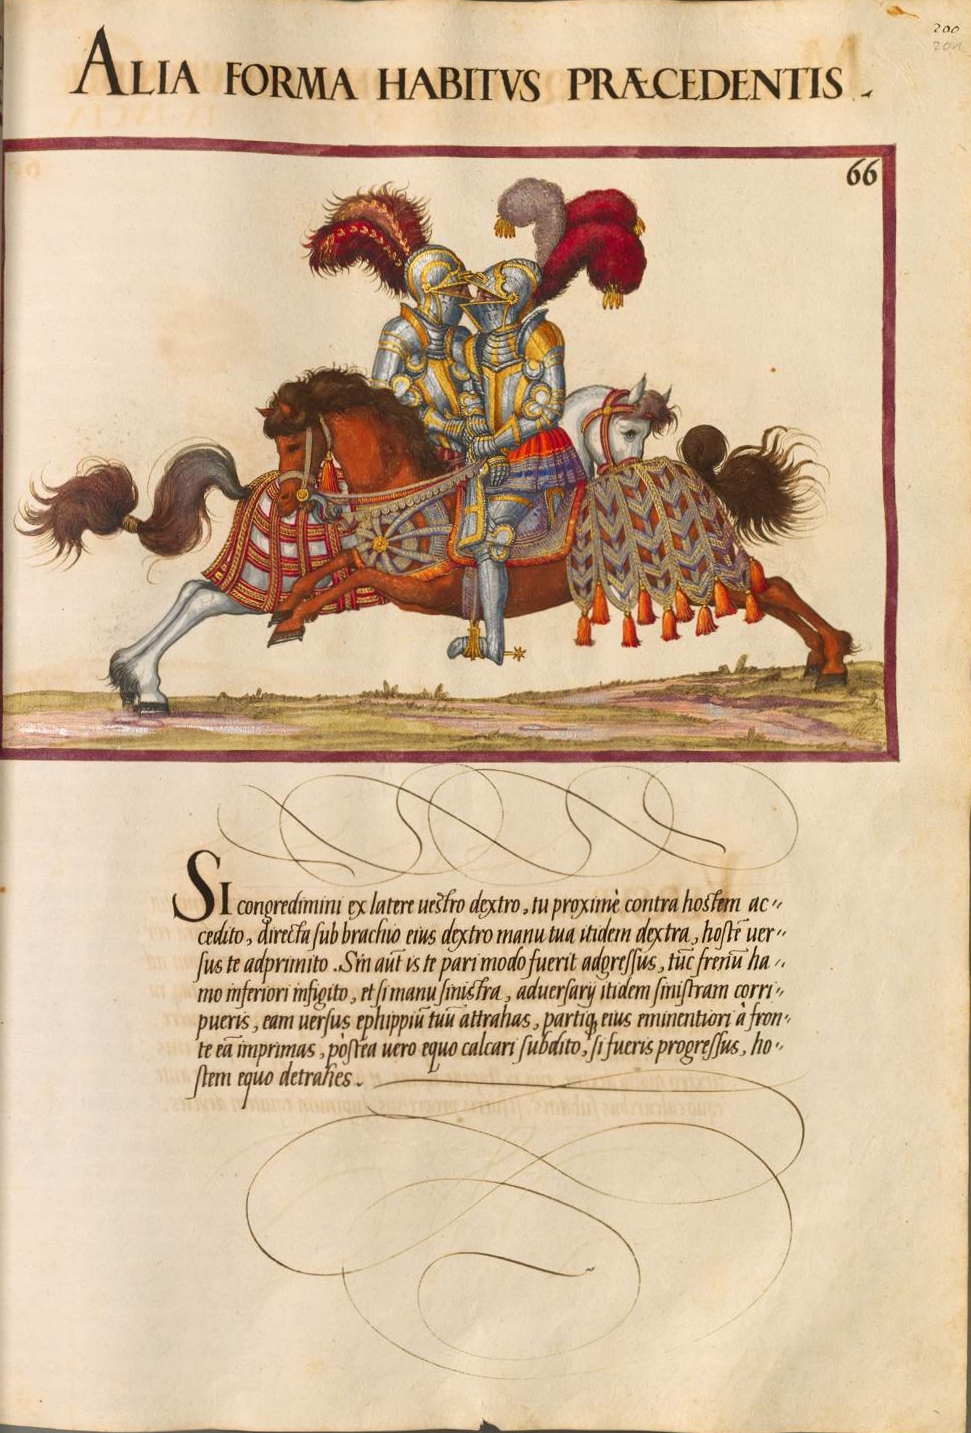 200
201
ALIA FORMA HABITVS PRÆCEDENTIS.
66
SI congredimini ex latere uestro dextro, tu proximè contra hostem ac„
cedito, directa sub brachio eius dextro manu tua itidem dextra, hostē uer„
sus te adprimito. Sin aūt is te pari modo fuerit adgressus, tūc frenū ha„
mo inferiori infigito, et si manu sinistra, aduersarij itidem sinistram corri„
pueris, eam uersus ephippiū tuū attrahas, partiq; eius eminentiori à fron„
te eā imprimas, pòstea uero equo calcari subdito, si fueris progressus, ho„
stem equo detrahes.